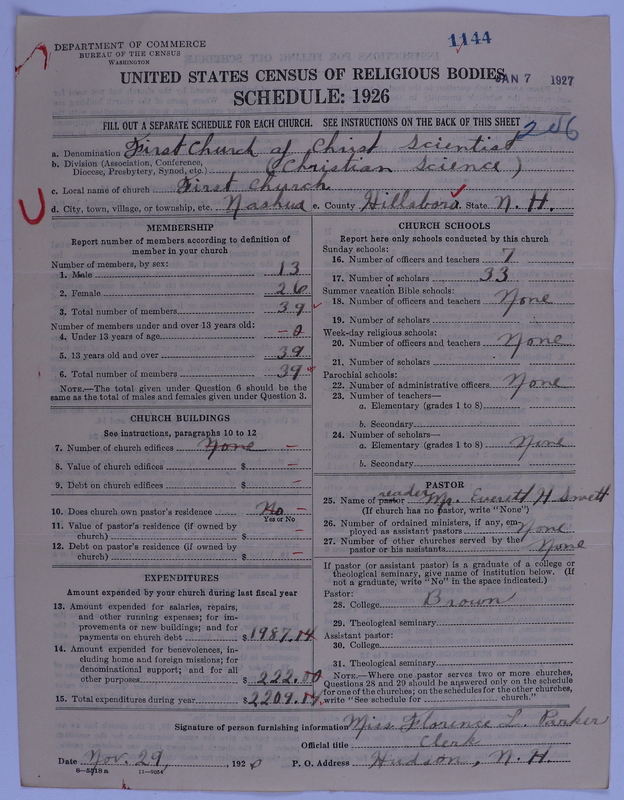 1144
DEPARTMENT OF COMMERCE
BUREAU OF THE CENSUS
WASHINGTON
JAN 7 1927
UNITED STATES CENSUS OF RELIGIOUS BODIES
SCHEDULE: 1926
FILL OUT A SEPARATE SCHEDULE FOR EACH CHURCH. SEE INSTRUCTIONS ON THE BACK OF THIS SHEET
206
a. Denomination First Church of Christ Scientist
b. Division (Association, Conference, Diocese, Presbytery, Synod, etc.) (Christian Science)
c. Local name of church First Church
d. City, town, village, or township, etc. Nashua e. County Hillsboro State N. H.
MEMBERSHIP
Report number of members according to definition of
member in your church
Number of members, by sex:
1. Male 13
2. Female 26
3. Total number of members 39
Number of members under and over 13 years old:
4. Under 13 years of age -0
5. 13 years old and over 39
6. Total number of members 39
NOTE.—The total given under Question 6 should be
same as the total of males and females given under Question 3.
CHURCH BUILDINGS
See instructions, paragraphs 10 to 12
7. Number of church edifices None —
8. Value of church edifices $ —
9. Debt on church edifices $ —
10. Does church own pastor's residence No —
Yes or No
11. Value of pastor's residence (if owned by
church) $ —
12. Debt on pastor's residence (if owned by
church) $ —
EXPENDITURES
Amount expended by your church during last fiscal year
13. Amount expended for salaries, repairs,
and other running expenses; for im-
provements or new buildings; and for
payments on church debt $1987.14
14. Amount expended for benevolences, in-
cluding home and foreign missions; for
denominational support; and for all
other purposes $ 222.00
15. Total expenditures during year $2209.14
CHURCH SCHOOLS
Report here only schools conducted by this church
Sunday schools:
16. Number of officers and teachers 7
17. Number of scholars 33
Summer vacation Bible schools:
18. Number of officers and teachers None
19. Number of scholars
Week-day religious schools:
20. Number of officers and teachers None
21. Number of scholars
Parochial schools:
22. Number of administrative officers None
23. Number of teachers—
a. Elementary (grades 1 to 8)
b. Secondary
24. Number of scholars—
a. Elementary (grades 1 to 8) None
b. Secondary
PASTOR
reader
25. Name of pastor Mr. Everett H.
(If church has no pastor, write "None")
26. Number of ordained ministers, if any, em-
ployed as assistant pastors None
27. Number of other churches served by the
pastor or his assistants None
If pastor (or assistant pastor) is a graduate of a college or
theological seminary, give name of institution below. (If
not a graduate, write "No" in the space indicated.)
Pastor:
28. College Brown
29. Theological seminary
Assistant pastor:
30. College
31. Theological seminary
NOTE.—Where one pastor serves two or more churches,
Questions 28 and 29 should be answered only on the schedule
for one of the churches; on the schedules for the other churches,
write "See schedule for church."
Signature of person furnishing information Miss Florence L. Parker
Official title Clerk
Date Nov. 29, 1926 P. O. Address Hudson, N. H.
8—5718 a 11—9054